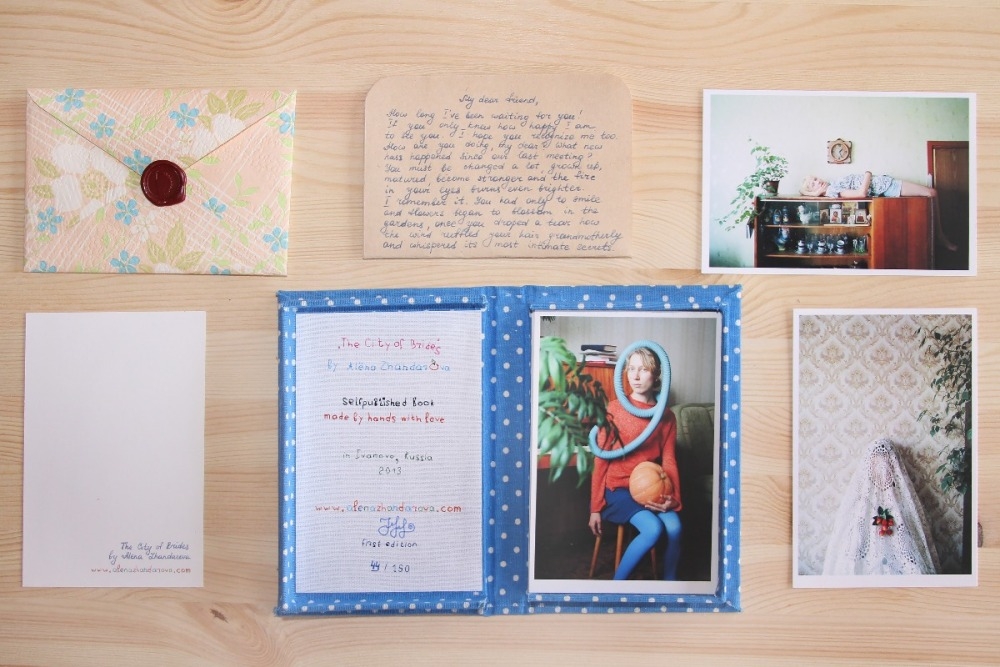 My dear friend,
How long I've been waiting for you!
If you only knew how happy I am
to see you. I hope you recognize me too.
How are you doing, my dear? What new
has happened since our last meeting?
You must be changed a lot, grown up,
matured, become stronger and the fire
in your eyes burns even brighter.
I remember it. You had only to smile
and flowers began to blossom in the
gardens, once you droped a tear how
the wind ruffled your hair grandmotherly
and whispered its most intimate secrets.
"The City of Brides"
by Alena Zhandarova
Selfpublished Book
made by hands with love
in Ivanovo, Russia
2013
www.alenazhandarova.com
first edition
44 / 150
The City of Brides
by Alena Zhandarova
www.alenazhandarova.com